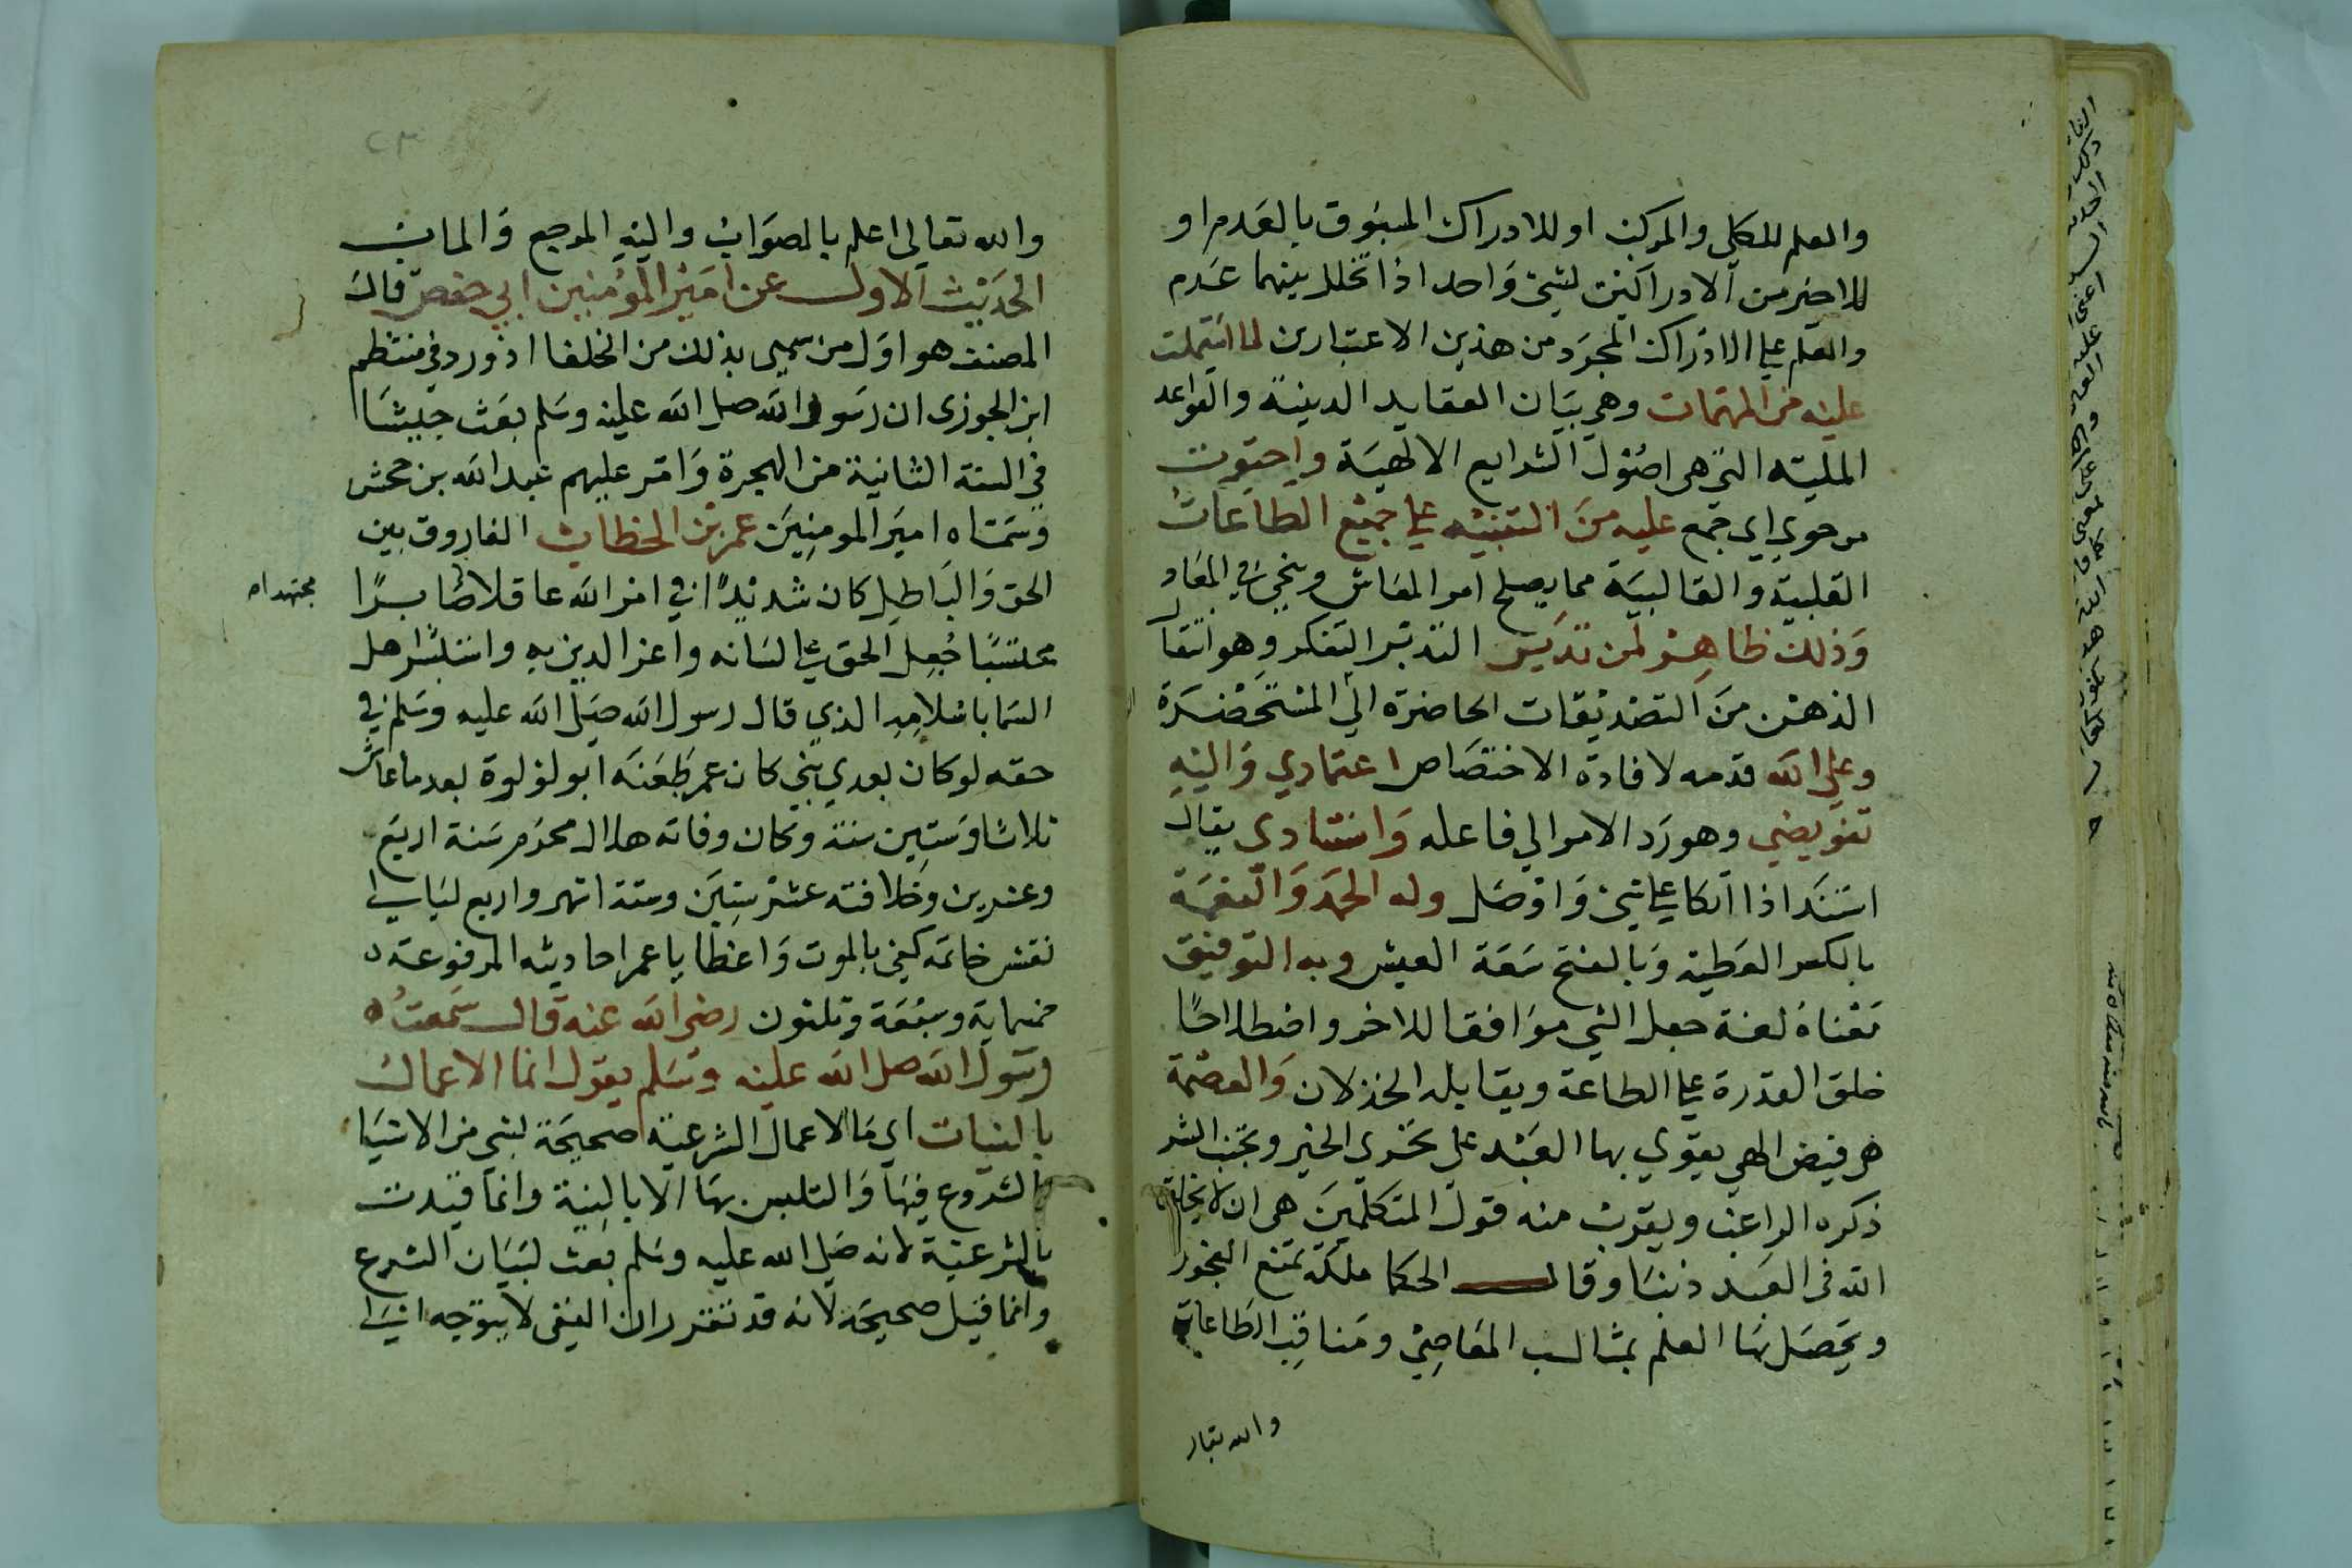 والعلم للكلي والمركب او للادراك المسبوق بالعدم او
للاخير من الادراكين لشئ واحد اذا تخلل بينهما عدم
والعلم على الادراك المجرد من هذين الاعتبارين لما اشتملت
عليه من المهمات وهي بيان العقايد الدينية والقواعد
الملية التي هي اصول الشرايع الالهية واحتوت
من حوي اي جمع عليه من التنبيه على جميع الطاعات
القلبية والقالبية مما يصلح امر المعاش وينجي في المعاد
وذلك ظاهر لمن تدبر التدبر التفكر وهو انتقال
الذهن من التصديقات الحاضرة الي المستحضرة
وعلي الله قدمه لافادة الاختصاص اعتمادي واليه
تفويضي وهو رد الامر الي فاعله واستنادي يقال
استند اذا اتكا على شئ واتصل وله الحمد والنعمة
بالكسر العطية وبالفتح سعة العيش وبه التوفيق
معناه لغة جعل الشي موافقا للاخر واصطلاحا
خلق القدرة على الطاعة ويقابله الخذلان والعصمة
هي فيض الهي يقوي بها العبد على تحري الخير وتجنب الشر
ذكره الراغب ويقرب منه قول المتكلمين هي ان لا يخلق
الله في العبد ذنبا وقال الحكما ملكة تمنع الفجور
ويحصل بها العلم بمثالب المعاصي ومناقب الطاعات
والله تعالى
٢٣
والله تعالى اعلم بالصواب واليه المرجع والماب
الحديث الاول عن امير المؤمنين ابي حفص قال
المصنف هو اول من سمي بذلك من الخلفا اذ ورد في منتظم
ابن الجوزي ان رسول الله صلى الله عليه وسلم بعث جيشا
في السنة الثانية من الهجرة وامر عليهم عبد الله بن جحش
وسماه امير المومنين عمر بن الخطاب الفاروق بين
الحق والباطل كان شديدا في امر الله عاقلا صابرا
مجتهدا
محتسبا جعل الحق على لسانه واعز الدين به واستبشر اهل
السما باسلامه الذي قال رسول الله صلى الله عليه وسلم في
حقه لو كان بعدي نبي كان عمر طعنه ابو لؤلوة بعد ما عاش
ثلاثا وستين سنة وكان وفاته هلال محرم سنة اربع
وعشرين وخلافته عشر سنين وستة اشهر واربع ليالي
نقش خاتمه كفى بالموت واعظا يا عمر احاديثه المرفوعة
خمسماية وسبعة وثلثون رضي الله عنه قال سمعت
رسول الله صلى الله عليه وسلم يقول انما الاعمال
بالنيات اي ما الاعمال الشرعية صحيحة لشي من الاشيا
بالشروع فيها والتلبس بها الا بالنية وانما قيدت
بالشرعية لانه صلى الله عليه وسلم بعث لبيان الشرع
وانما قيل صحيحة لانه قد تقرر ان النفي لا يتوجه